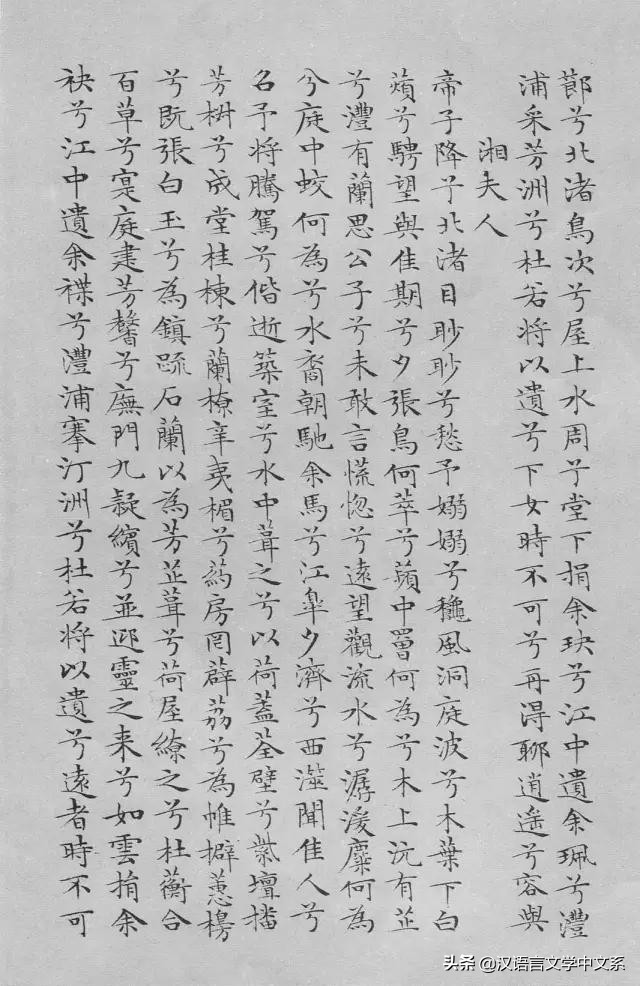 莭兮北渚鳥次兮屋上水周兮堂下捐余玦兮江中遺余珮兮澧
浦采芳洲兮杜若將以遺兮下女時不可兮再得聊逍遙兮容與
湘夫人
帝子降兮北渚目眇眇兮愁予嫋嫋兮穐風洞庭波兮木葉下白
薠兮騁望與佳期兮夕張鳥何萃兮蘋中罾何為兮木上沅有芷
兮澧有蘭思公子兮未敢言慌惚兮遠望觀流水兮潺湲麋何為
兮庭中蛟何為兮水裔朝馳余馬兮江皋夕濟兮西澨聞佳人兮
名予將騰駕兮偕逝築室兮水中葺之兮以荷蓋荃壁兮紫壇播
芳椒兮成堂桂棟兮蘭橑辛夷楣兮葯房罔薜荔兮為帷擗蕙櫋
兮既張白玉兮為鎮疏石蘭以為芳芷葺兮荷屋繚之兮杜蘅合
百草兮寔庭建芳馨兮廡門九疑繽兮並迎靈之来兮如雲捐余
袂兮江中遺余褋兮澧浦搴汀洲兮杜若將以遺兮遠者時不可
头条 @汉语言文学中文系